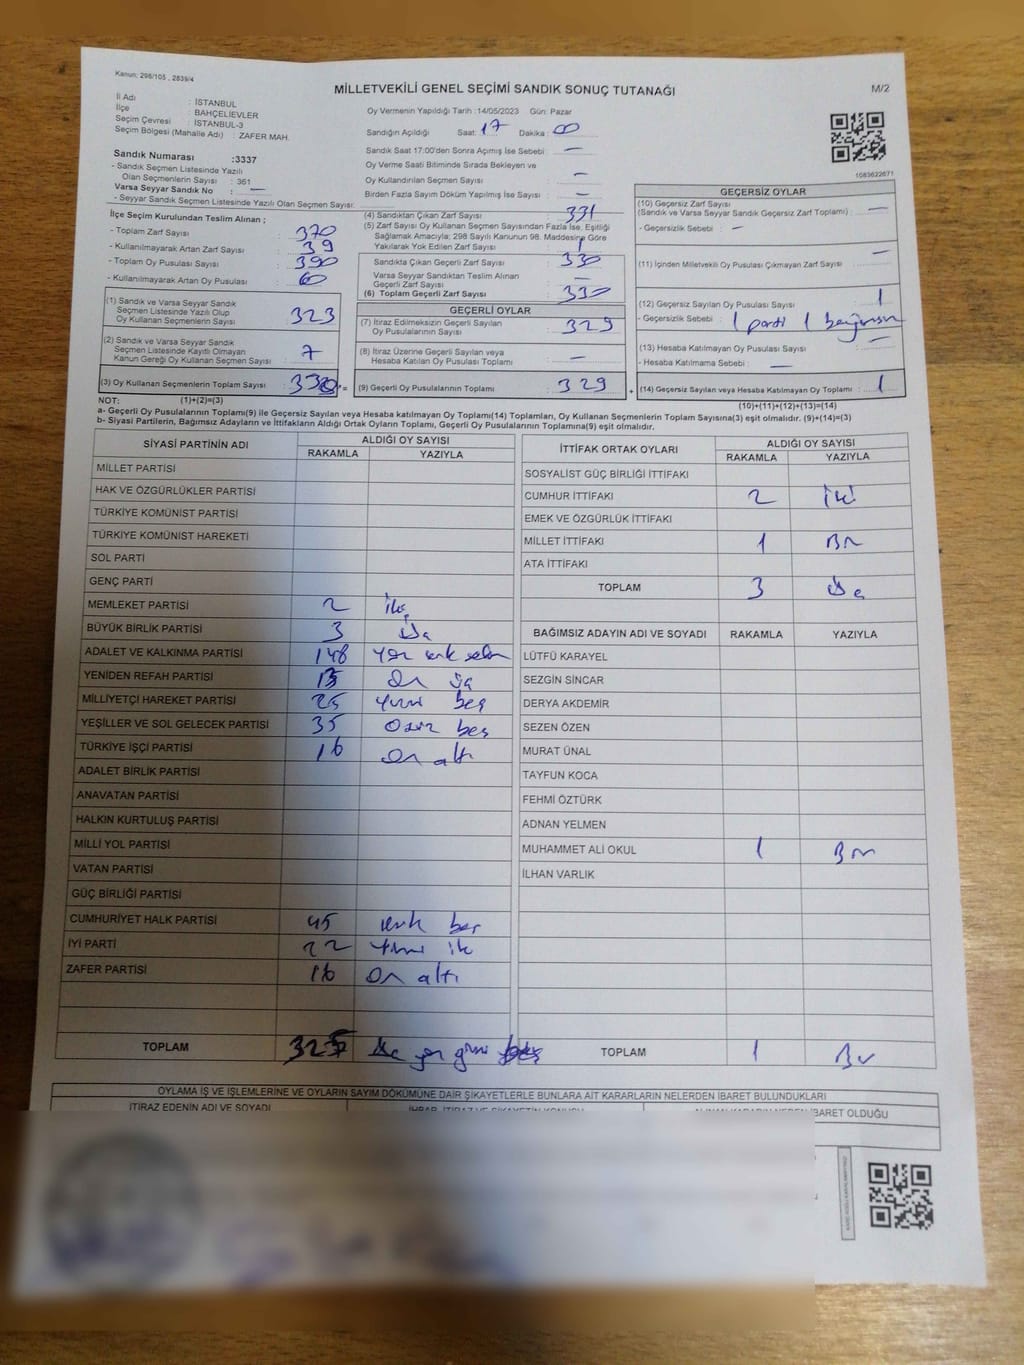 Kanun: 298/105 , 2839/4
MİLLETVEKİLİ GENEL SEÇİMİ SANDIK SONUÇ TUTANAĞI
M/2
İl Adı : İSTANBUL
İlçe : BAHÇELİEVLER
Seçim Çevresi : İSTANBUL-3
Seçim Bölgesi (Mahalle Adı) : ZAFER MAH.
Oy Vermenin Yapıldığı Tarih :14/05/2023 Gün: Pazar
Sandığın Açıldığı Saat: 17 Dakika: 00
Sandık Saat 17:00'den Sonra Açılmış İse Sebebi: —
Oy Verme Saati Bitiminde Sırada Bekleyen ve
Oy Kullandırılan Seçmen Sayısı : —
Birden Fazla Sayım Döküm Yapılmış İse Sayısı : —
1083622671
Sandık Numarası :3337
- Sandık Seçmen Listesinde Yazılı
Olan Seçmenlerin Sayısı : 361
Varsa Seyyar Sandık No : —
- Seyyar Sandık Seçmen Listesinde Yazılı Olan Seçmen Sayısı:
İlçe Seçim Kurulundan Teslim Alınan ;
- Toplam Zarf Sayısı : 370
- Kullanılmayarak Artan Zarf Sayısı : 39
- Toplam Oy Pusulası Sayısı : 390
- Kullanılmayarak Artan Oy Pusulası : 60
(1) Sandık ve Varsa Seyyar Sandık
Seçmen Listesinde Yazılı Olup
Oy Kullanan Seçmenlerin Sayısı : 323
(2) Sandık ve Varsa Seyyar Sandık
Seçmen Listesinde Kayıtlı Olmayan
Kanun Gereği Oy Kullanan Seçmen Sayısı : 7
(3) Oy Kullanan Seçmenlerin Toplam Sayısı : 330 =
(4) Sandıktan Çıkan Zarf Sayısı : 331
(5) Zarf Sayısı Oy Kullanan Seçmen Sayısından Fazla İse, Eşitliği
Sağlamak Amacıyla; 298 Sayılı Kanunun 98. Maddesine Göre
Yakılarak Yok Edilen Zarf Sayısı : 1
Sandıkta Çıkan Geçerli Zarf Sayısı : 330
Varsa Seyyar Sandıktan Teslim Alınan
Geçerli Zarf Sayısı : —
(6) Toplam Geçerli Zarf Sayısı : 330
GEÇERLİ OYLAR
(7) İtiraz Edilmeksizin Geçerli Sayılan
Oy Pusulalarının Sayısı : 329
(8) İtiraz Üzerine Geçerli Sayılan veya
Hesaba Katılan Oy Pusulası Toplamı : —
(9) Geçerli Oy Pusulalarının Toplamı : 329 +
GEÇERSİZ OYLAR
(10) Geçersiz Zarf Sayısı
(Sandık ve Varsa Seyyar Sandık Geçersiz Zarf Toplamı) : —
- Geçersizlik Sebebi : —
(11) İçinden Milletvekili Oy Pusulası Çıkmayan Zarf Sayısı : —
(12) Geçersiz Sayılan Oy Pusulası Sayısı : 1
- Geçersizlik Sebebi : 1 parti 1 bağımsız
(13) Hesaba Katılmayan Oy Pusulası Sayısı : —
- Hesaba Katılmama Sebebi : —
(14) Geçersiz Sayılan veya Hesaba Katılmayan Oy Toplamı : 1
NOT: (1)+(2)=(3)
(10)+(11)+(12)+(13)=(14)
a- Geçerli Oy Pusulalarının Toplamı(9) ile Geçersiz Sayılan veya Hesaba katılmayan Oy Toplamı(14) Toplamları, Oy Kullanan Seçmenlerin Toplam Sayısına(3) eşit olmalıdır. (9)+(14)=(3)
b- Siyasi Partilerin, Bağımsız Adayların ve İttifakların Aldığı Ortak Oyların Toplamı, Geçerli Oy Pusulalarının Toplamına(9) eşit olmalıdır.
SİYASİ PARTİNİN ADI ALDIĞI OY SAYISI
RAKAMLA YAZIYLA
MİLLET PARTİSİ
HAK VE ÖZGÜRLÜKLER PARTİSİ
TÜRKİYE KOMÜNİST PARTİSİ
TÜRKİYE KOMÜNİST HAREKETİ
SOL PARTİ
GENÇ PARTİ
MEMLEKET PARTİSİ 2 iki
BÜYÜK BİRLİK PARTİSİ 3 Üç
ADALET VE KALKINMA PARTİSİ 148 Yüz kırk sekiz
YENİDEN REFAH PARTİSİ 13 On üç
MİLLİYETÇİ HAREKET PARTİSİ 25 yirmi beş
YEŞİLLER VE SOL GELECEK PARTİSİ 35 Otuz beş
TÜRKİYE İŞÇİ PARTİSİ 16 On altı
ADALET BİRLİK PARTİSİ
ANAVATAN PARTİSİ
HALKIN KURTULUŞ PARTİSİ
MİLLİ YOL PARTİSİ
VATAN PARTİSİ
GÜÇ BİRLİĞİ PARTİSİ
CUMHURİYET HALK PARTİSİ 45 kırk beş
İYİ PARTİ 22 yirmi iki
ZAFER PARTİSİ 16 On altı
TOPLAM 325 Üç yüz yirmi beş
İTTİFAK ORTAK OYLARI ALDIĞI OY SAYISI
RAKAMLA YAZIYLA
SOSYALİST GÜÇ BİRLİĞİ İTTİFAKI
CUMHUR İTTİFAKI 2 iki
EMEK VE ÖZGÜRLÜK İTTİFAKI
MİLLET İTTİFAKI 1 Bir
ATA İTTİFAKI
TOPLAM 3 Üç
BAĞIMSIZ ADAYIN ADI VE SOYADI RAKAMLA YAZIYLA
LÜTFÜ KARAYEL
SEZGİN SİNCAR
DERYA AKDEMİR
SEZEN ÖZEN
MURAT ÜNAL
TAYFUN KOCA
FEHMİ ÖZTÜRK
ADNAN YELMEN
MUHAMMET ALİ OKUL 1 Bir
İLHAN VARLIK
TOPLAM 1 Bir
OYLAMA İŞ VE İŞLEMLERİNE VE OYLARIN SAYIM DÖKÜMÜNE DAİR ŞİKAYETLERLE BUNLARA AİT KARARLARIN NELERDEN İBARET BULUNDUKLARI
İTİRAZ EDENİN ADI VE SOYADI